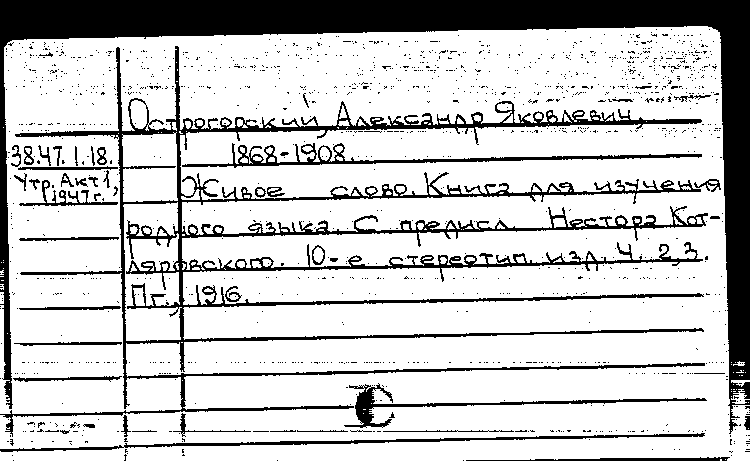 Острогорский, Александр Яковлевич,
38.47.1.18. 1868-1908.
Утр. Акт 1, 1947 г.
Живое слово. Книга для изучения
родного языка. С предисл. Нестора Кот-
ляровского. 10-е стереотип. изд. Ч. 2,3.
Пг., 1916.